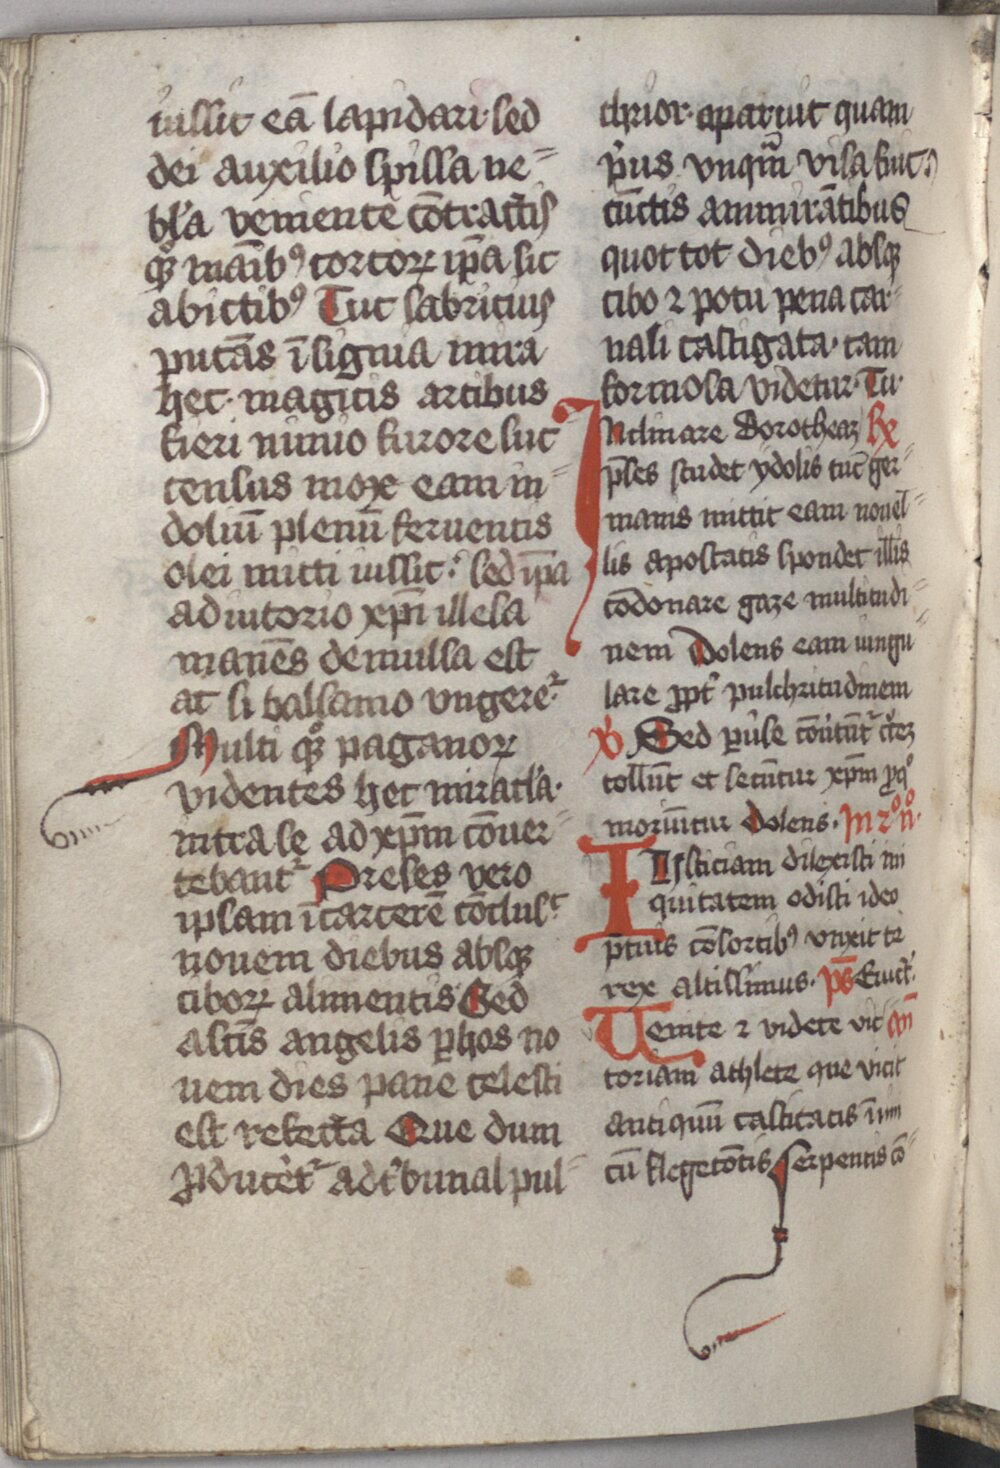 iussit eā lapidari· sed
dei auxilio spissa ne=
bl'a veniente cōtractis
qͦꝫ manibꝰ tortoꝝ ip̄a sic
abictibꝰ Tūc fabricius
putās ī signia mira
hec· magicis artibus
fieri nimio furore suc
census mox eam in=
doliū plenū feruentis
olei mitti iussit· sed ip̄a
adiutorio xp̄i illesa
manēs demulsa est
ac si balsamo vngeret᷑
Multi qͦꝫ paganoꝝ
videntes hec miracl'a·
intra se ad xp̄m cōuer=
tebant᷑ Preses vero
ipsam ī carcerē cōclus᷑
nouem diebus absqꝫ
ciboꝝ alimentis Sed
a sctīs angelis ꝑ hos no
uem dies pane celesti
est refecta Que dum
ꝓducet᷑ ad t'bunal pul=
chrior· aparuit quam
p'us vnqm̄ visa fuit
cūctis ammirātibus
quot tot diebꝰ absqꝫ
cibo ⁊ potu pena car=
nali castigata· tam
formosa videtur· Tu·
Inclinare Dorotheaꝫ Rx
p̄ses studet ydolis tūc ger=
manis mittit eam nouel=
lis apostatis spondet illis
cōdonare gaze multitudi=
nem Dolens eam iungu
lare ꝓpt' pulchritudinem
V Sed
tollūt et secuntur xp̄m
moriūtur Dolens· In ⁊ͦ nͦ·
Iusticiam dilexisti ini
quitatem odisti ideo
p̄ tuis cōsortibꝰ vnxit te
rex altissimus· p̄s Eruct'·
Uenite ⁊ videte vic an̄
toriam athlete que vicit
antiquū castitatis inim
cū flegetōtis serpentis cō=